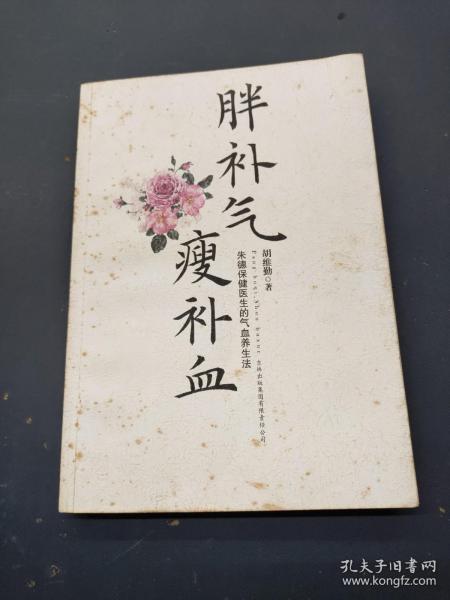 胖补气
瘦补血
胡维勤◎著
Pang buqi, Shou buxue
朱德保健医生的气血养生法
吉林出版集团有限责任公司
孔夫子旧书网
www.kongfz.com